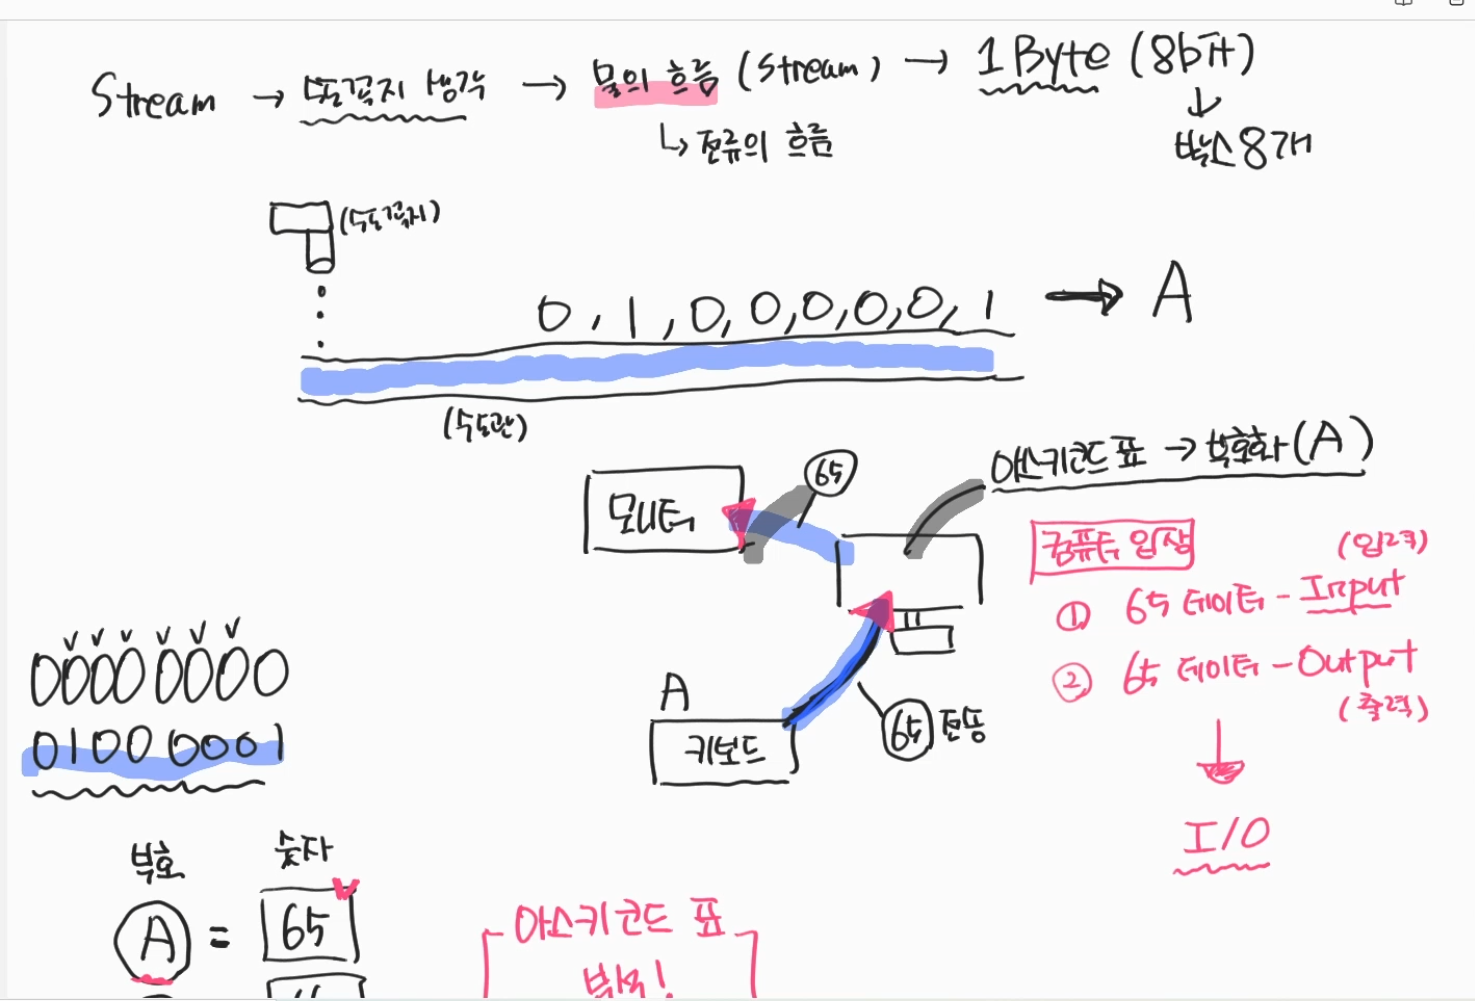 Stream → 또랑꼭지 생각 → 물의 흐름 (Stream) → 1Byte (8bit)
↳ 전류의 흐름
↓
박스 8개
(수도꼭지)
0, 1, 0, 0, 0, 0, 0, 1 → A
(수도관)
아스키코드 표 → 부호화 (A)
65
모니터
컴퓨터 입장
(입력)
① 65 데이터 - Input
② 65 데이터 - Output
(출력)
I/O
A
키보드
65 전송
0000 0000
0100 0001
부호 숫자
A = 65
아스키코드 표